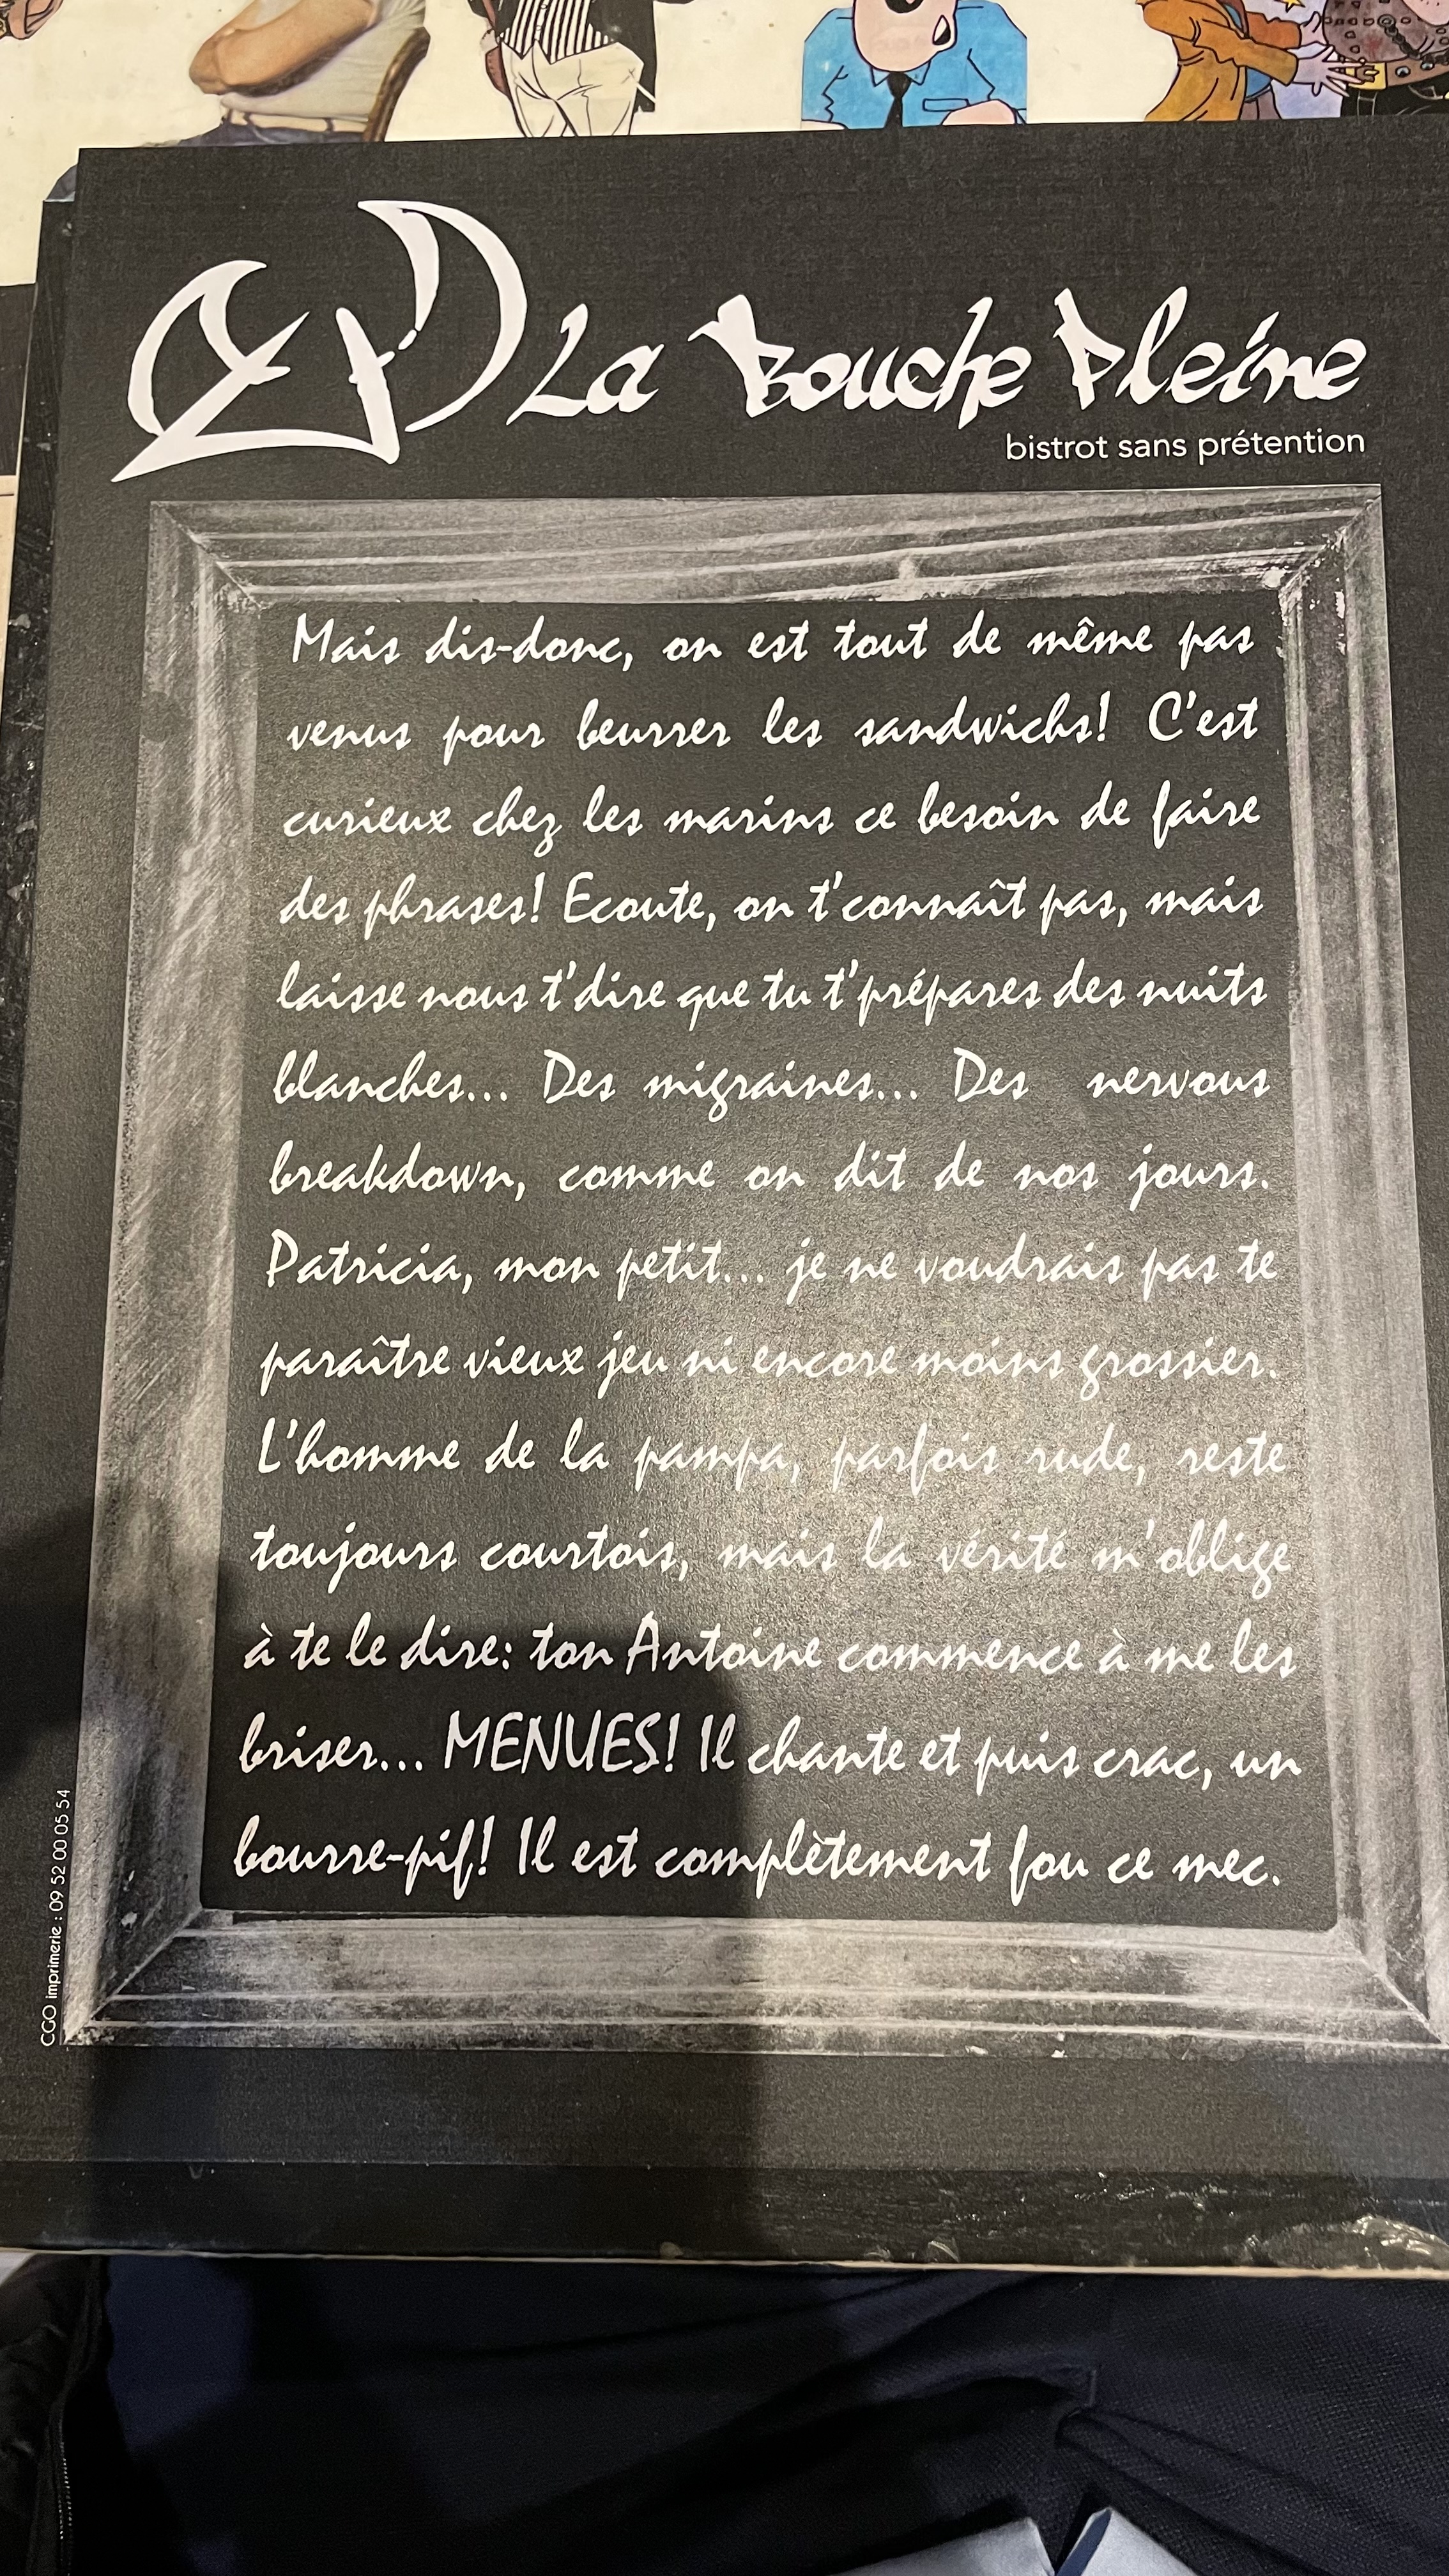 La Bouche Pleine
bistrot sans prétention
Mais dis-donc, on est tout de même pas
venus pour beurrer les sandwichs! C'est
curieux chez les marins ce besoin de faire
des phrases! Ecoute, on t'connaît pas, mais
laisse nous t'dire que tu t'prépares des nuits
blanches... Des migraines... Des nervous
breakdown, comme on dit de nos jours.
Patricia, mon petit... je ne voudrais pas te
paraître vieux jeu ni encore moins grossier.
L'homme de la pampa, parfois rude, reste
toujours courtois, mais la vérité m'oblige
à te le dire: ton Antoine commence à me les
briser... MENUES! Il chante et puis crac, un
bourre-pif! Il est complètement fou ce mec.
CGO imprimerie : 09 52 00 05 54